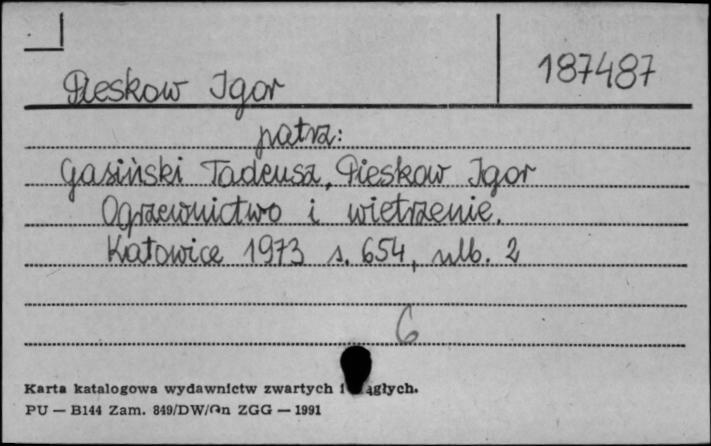 Pieskow Igor
187487
patrz:
Gasiński Tadeusz, Pieskow Igor
Ogrzewnictwo i wietrzenie.
Katowice 1973 s. 654, nlb. 2
6
Karta katalogowa wydawnictw zwartych i ągłych.
PU — B144 Zam. 849/DW/On ZGG — 1991